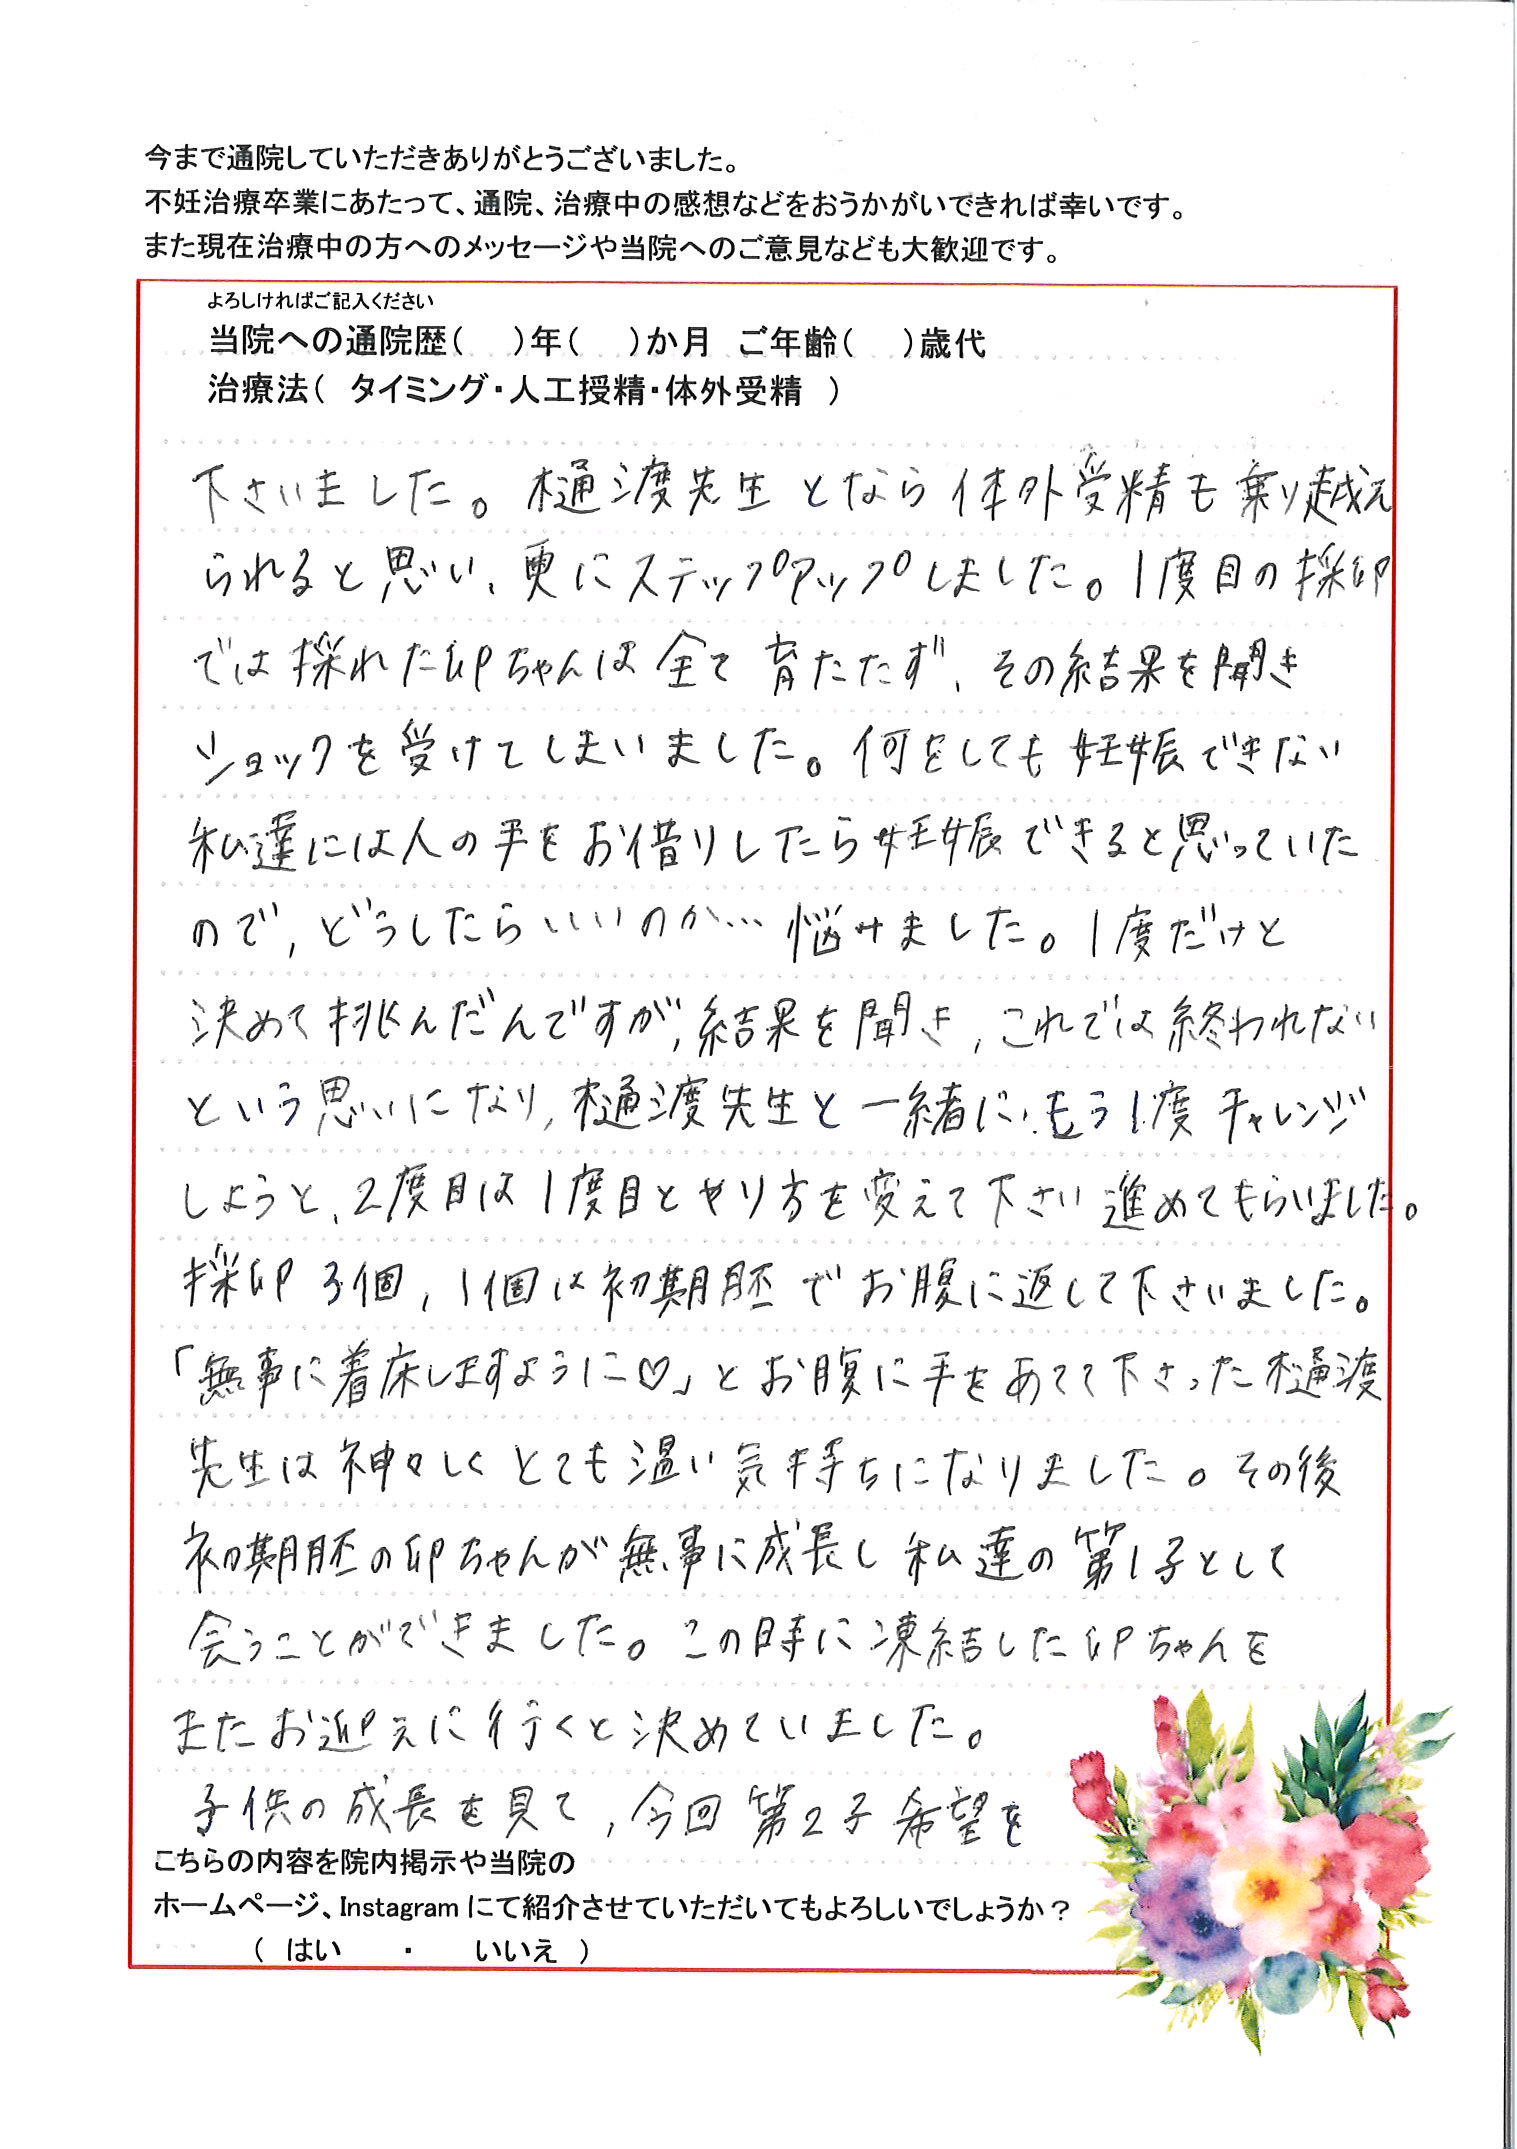 今まで通院していただきありがとうございました。
不妊治療卒業にあたって、通院、治療中の感想などをおうかがいできれば幸いです。
また現在治療中の方へのメッセージや当院へのご意見なども大歓迎です。
よろしければご記入ください
当院への通院歴（　）年（　）か月　ご年齢（　）歳代
治療法（　タイミング・人工授精・体外受精　）
下さいました。樋渡先生となら体外受精も乗り越え
られると思い、更にステップアップしました。1度目の採卵
では採れた卵ちゃんは全て育たたず、その結果を聞き
ショックを受けてしまいました。何をしても妊娠できない
私達には人の手をお借りしたら妊娠できると思っていた
ので，どうしたらいいのか…悩みました。1度だけと
決めて挑んだんですが，結果を聞き，これでは終われない
という思いになり，樋渡先生と一緒に、もう1度チャレンジ
しようと、2度目は1度目とやり方を変えて下さい進めてもらいました。
採卵3個，1個は初期胚でお腹に返して下さいました。
「無事に着床しますように♡」とお腹に手をあてて下さった樋渡
先生は神々しくとても温い気持ちになりました。その後
初期胚の卵ちゃんが無事に成長し私達の第1子として
会うことができました。この時に凍結した卵ちゃんを
またお迎えに行くと決めていました。
子供の成長を見て，今回第2子希望を
こちらの内容を院内掲示や当院の
ホームページ、Instagramにて紹介させていただいてもよろしいでしょうか？
（　はい　・　いいえ　）